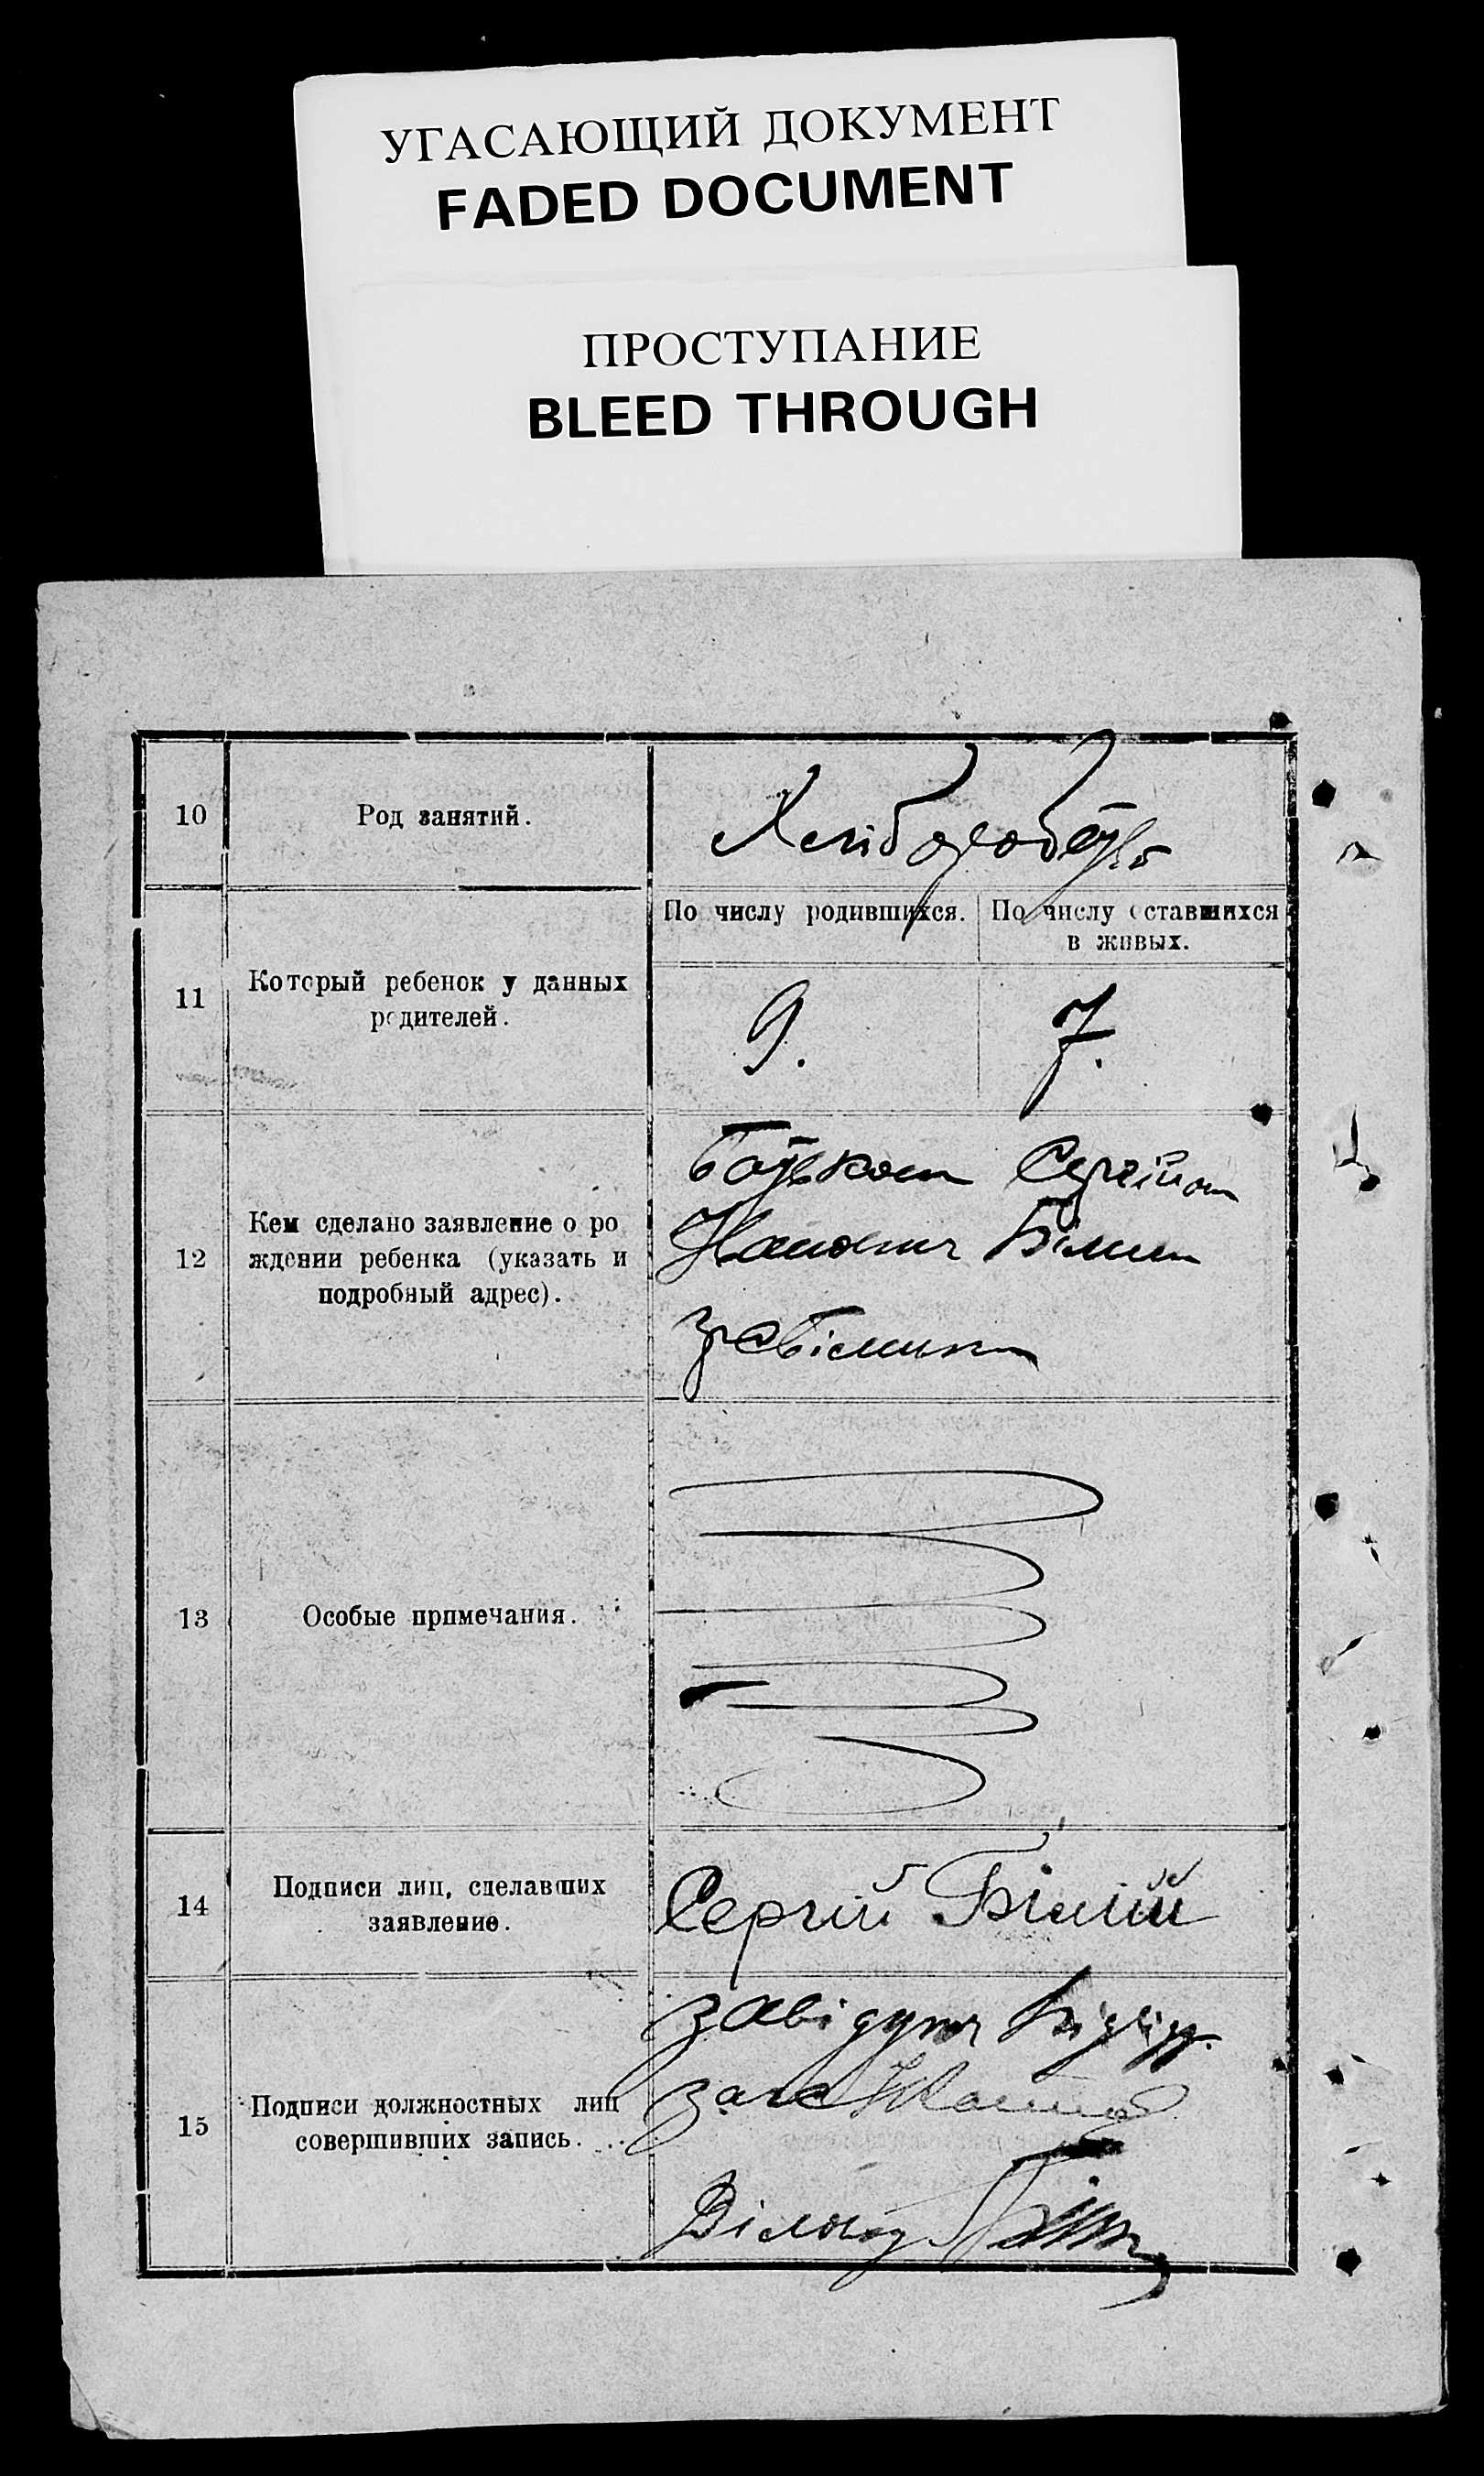 УГАСАЮЩИЙ ДОКУМЕНТ
FADED DOCUMENT
ПРОСТУПАНИЕ
BLEED THROUGH
10 Род занятий.
Хлібороб
11 Который ребенок у данных
родителей.
По числу родившихся.
По числу оставшихся
в живых.
9.
7.
12 Кем сделано заявление о ро
ждении ребенка (указать и
подробный адрес).
Батьком Сергіем
Білим
13 Особые примечания.
14 Подписи лиц, сделавших
заявление.
Сергій Білій
15 Подписи должностных лиц
совершивших запись.
Завідуюч
загс
Діловод